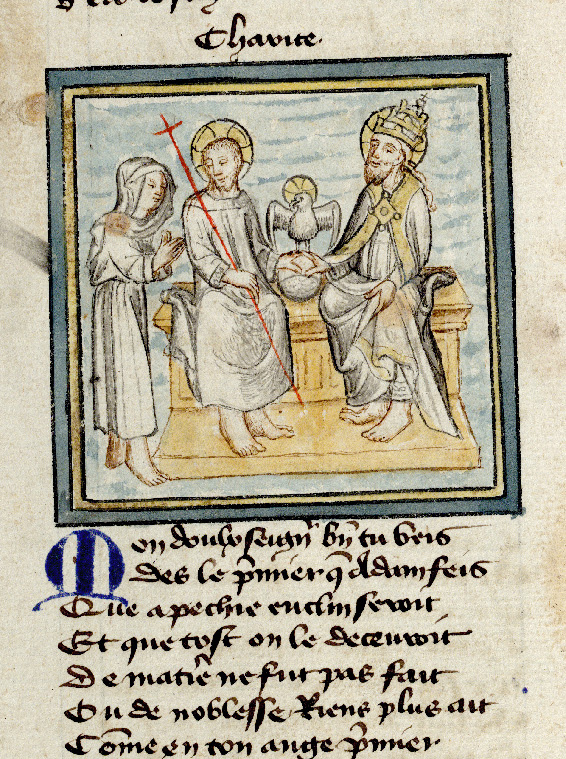 Charite.
Mon doulx seigñ bñ tu veis
Des le p̃mier q̃ Adam feis
Que a pechie enclin seroit
Et que tost on le decevroit
De matie᷑ ne fut pas fait
Ou de noblesse Riens plus ait
Cõme en ton ange p̃mier